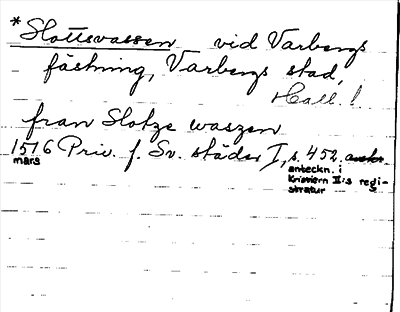 *Slottsvassen vid Varbergs
fästning, Varbergs stad,
Hall.!
fran Slotze waszen
1516 Priv. f. Sv. städer I, s. 452
mars
anteckn. i
Kristiern II:s regi-
stratur